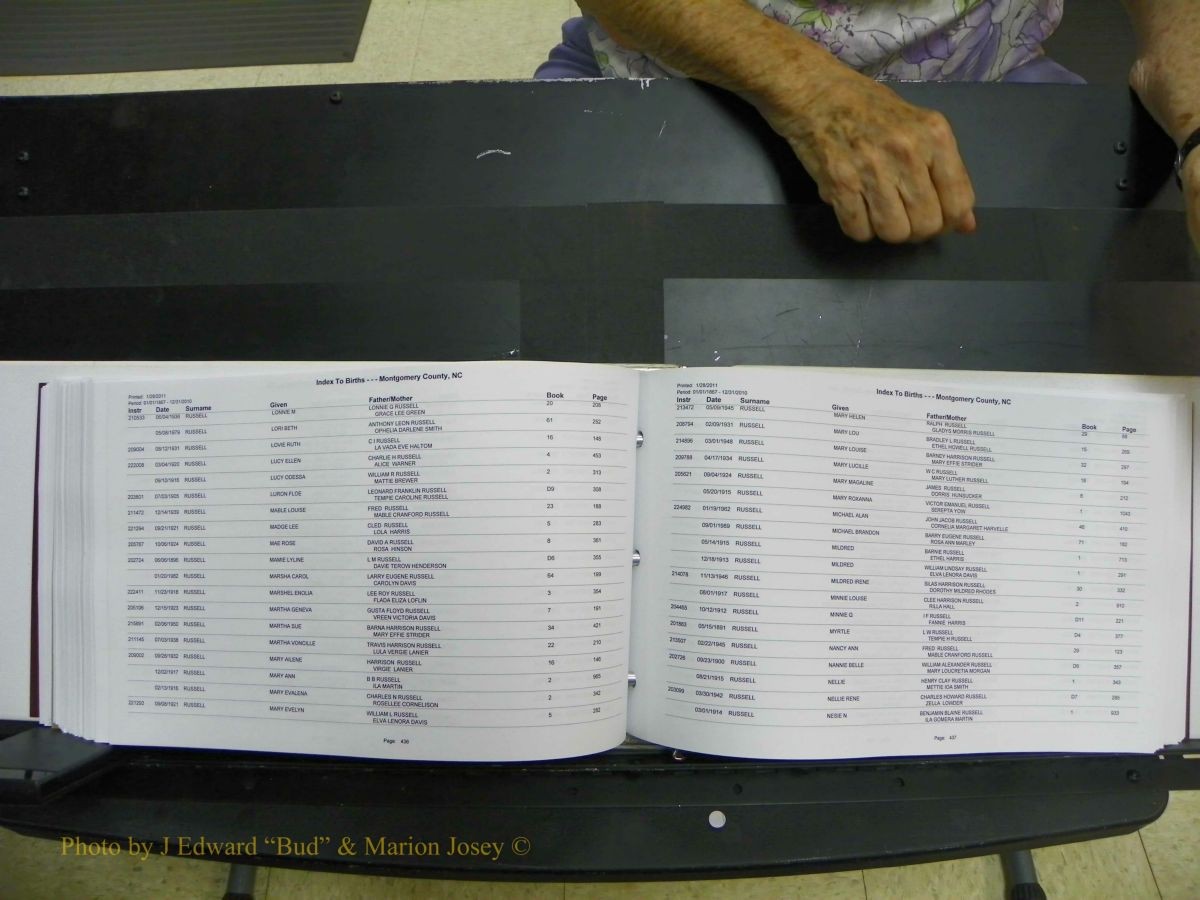 Index To Births - - - Montgomery County, NC
Printed: 1/28/2011
Period: 01/01/1867 - 12/31/2010
Instr Date Surname Given Father/Mother Book Page
210533 RUSSELL LONNIE M LONNIE G RUSSELL 20 208
GRACE LEE GREEN
05/08/1979 RUSSELL LORI BETH ANTHONY LEON RUSSELL 61 252
OPHELIA DARLENE SMITH
209004 RUSSELL LOVIE RUTH C I RUSSELL 16 148
LA VADA EVE HALTOM
222008 03/04/1920 RUSSELL LUCY ELLEN CHARLIE H RUSSELL 4 453
ALICE WARNER
09/13/1916 RUSSELL LUCY ODESSA WILLIAM R RUSSELL 2 313
MATTIE BREWER
203801 07/03/1905 RUSSELL LURON FLOE LEONARD FRANKLIN RUSSELL D9 308
TEMPIE CAROLINE RUSSELL
211472 12/04/1939 RUSSELL MABLE LOUISE FRED RUSSELL 23 188
MABLE CRANFORD RUSSELL
221294 09/21/1921 RUSSELL MADGE LEE CLED RUSSELL 5 283
LOLA HARRIS
205767 10/06/1924 RUSSELL MAE ROSE DAVID A RUSSELL 8 361
ROSA HINSON
202724 06/06/1896 RUSSELL MAMIE LYLINE L M RUSSELL D6 355
DAVIE TEROW HENDERSON
01/20/1982 RUSSELL MARSHA CAROL LARRY EUGENE RUSSELL 64 199
CAROLYN DAVIS
222411 11/23/1918 RUSSELL MARSHEL ENOLIA LEE ROY RUSSELL 3 354
FLADA ELIZA LOFLIN
205106 12/15/1923 RUSSELL MARTHA GENEVA GUSTA FLOYD RUSSELL 7 191
VREEN VICTORIA DAVIS
215691 02/06/1950 RUSSELL MARTHA SUE BARNA HARRISON RUSSELL 34 421
MARY EFFIE STRIDER
211145 07/03/1938 RUSSELL MARTHA VONCILLE TRAVIS HARRISON RUSSELL 22 210
LULA VERGIE LANIER
209002 09/28/1932 RUSSELL MARY AILENE HARRISON RUSSELL 16 146
VIRGIE LANIER
12/02/1917 RUSSELL MARY ANN B B RUSSELL 2 965
ILA MARTIN
02/13/1916 RUSSELL MARY EVALENA CHARLES N RUSSELL 2 342
ROGELLEE CORNELISON
221292 09/08/1921 RUSSELL MARY EVELYN WILLIAM L RUSSELL 5 282
ELVA LENORA DAVIS
Page: 436
Index To Births - - - Montgomery County, NC
Printed: 1/28/2011
Period: 01/01/1867 - 12/31/2010
Instr Date Surname Given Father/Mother Book Page
213472 05/09/1945 RUSSELL MARY HELEN RALPH RUSSELL 29 88
GLADYS MORRIS RUSSELL
208794 02/09/1931 RUSSELL MARY LOU BRADLEY L RUSSELL 15 269
ETHEL HOWELL RUSSELL
214896 03/01/1948 RUSSELL MARY LOUISE BARNEY HARRISON RUSSELL 32 297
MARY EFFIE STRIDER
209788 04/17/1934 RUSSELL MARY LUCILLE W C RUSSELL 18 194
MARY LUTHER RUSSELL
205621 09/04/1924 RUSSELL MARY MAGALINE JAMES RUSSELL 8 212
DORRIS HUNSUCKER
05/20/1915 RUSSELL MARY ROXANNA VICTOR EMANUEL RUSSELL 1 1043
SEREPTA YOW
224982 01/19/1962 RUSSELL MICHAEL ALAN JOHN JACOB RUSSELL 46 410
CORNELIA MARGARET HARVELLE
09/01/1989 RUSSELL MICHAEL BRANDON BARRY EUGENE RUSSELL 71 182
ROSA ANN MARLEY
05/14/1915 RUSSELL MILDRED BARNIE RUSSELL 1 713
ETHEL HARRIS
12/18/1913 RUSSELL MILDRED WILLIAM LINDSAY RUSSELL 1 291
ELVA LENORA DAVIS
214078 11/13/1946 RUSSELL MILDRED IRENE SILAS HARRISON RUSSELL 30 332
DOROTHY MILDRED RHODES
08/01/1917 RUSSELL MINNIE LOUISE CLEE HARRISON RUSSELL 2 910
RILLA HALL
234465 10/12/1912 RUSSELL MINNIE Q I F RUSSELL D11 221
FANNIE HARRIS
201863 05/15/1891 RUSSELL MYRTLE L W RUSSELL D4 377
TEMPIE H RUSSELL
213507 02/22/1945 RUSSELL NANCY ANN FRED RUSSELL 29 123
MABLE CRANFORD RUSSELL
202726 09/23/1900 RUSSELL NANNIE BELLE WILLIAM ALEXANDER RUSSELL D6 357
MARY LOUCRETIA MORGAN
08/21/1915 RUSSELL NELLIE HENRY CLAY RUSSELL 1 343
METTIE IDA SMITH
203099 03/30/1942 RUSSELL NELLIE RENE CHARLES HOWARD RUSSELL D7 285
ZELLA LOWDER
03/01/1914 RUSSELL NESIE N BENJAMIN BLAINE RUSSELL 1 933
ILA GOMERA MARTIN
Page: 437
Photo by J Edward “Bud” & Marion Josey ©